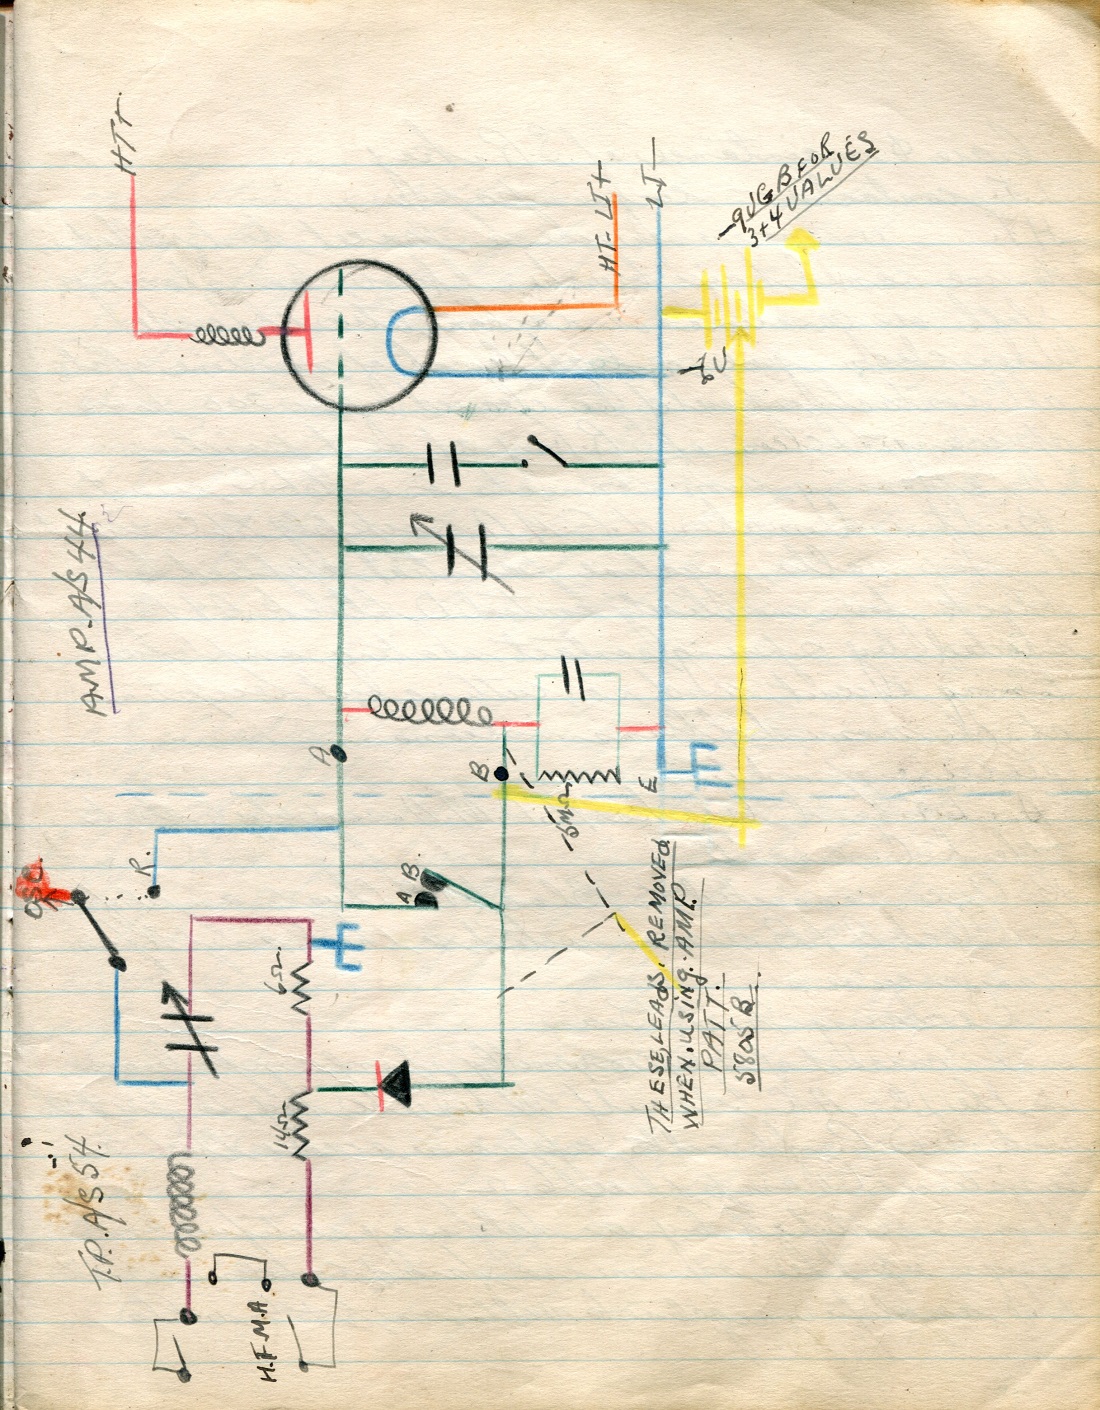 HT+
HT- LT+
LT-
-9V G B FOR
3+4 VALVES
-6V
AMP. A/S 44.
A
B
E
OSC.
R.
A B.
6Ω
14Ω
T.P. A/S 54.
H.F.M.A
THESE, LEADS. REMOVED
WHEN. USING. AMP
PATT.
5805B.